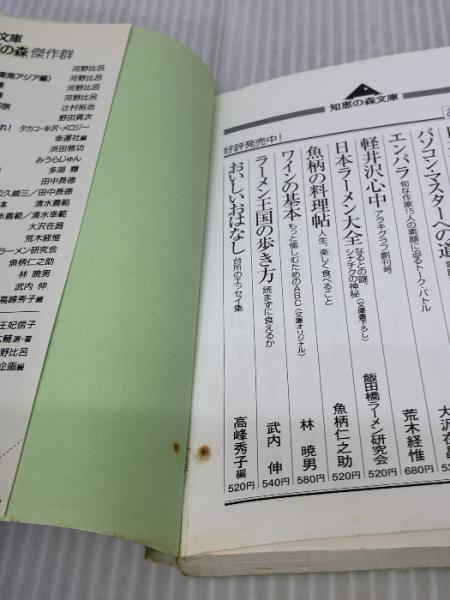 文庫
の森 傑作群
河野比呂
東南アジア編) 河野比呂
河野比呂
辻村裕治
野田貢次
れ! タカコ・半沢・メロジー
幸運社編
浜田雅功
みうらじゅん
多湖 輝
田中長徳
和久峻三/田中長徳
本 清水義範
義範/清水幸範
大沢在昌
荒木経惟
ラーメン研究会
魚柄仁之助
林 暁男
武内 伸
高峰秀子編
王妃信子
野比呂
企画編
知恵の森文庫
好評発売中!
パソコン・マスターへの道
エンパラ 旬な作家15人の素顔に迫るトーク・バトル 大沢在昌 520
軽井沢心中 アラキグラフ創刊号 荒木経惟 680円
日本ラーメン大全 なるとの謎、シナチクの神秘〈文庫書下ろし〉 飯田橋ラーメン研究会 520円
魚柄の料理帖 人生、楽しく食べること 魚柄仁之助 520円
ワインの基本 もっと愉しむためのABC〈文庫オリジナル〉 林 暁男 580円
ラーメン王国の歩き方 読まずに食えるか 武内 伸 540円
おいしいおはなし 台所のエッセイ集 高峰秀子編 520円